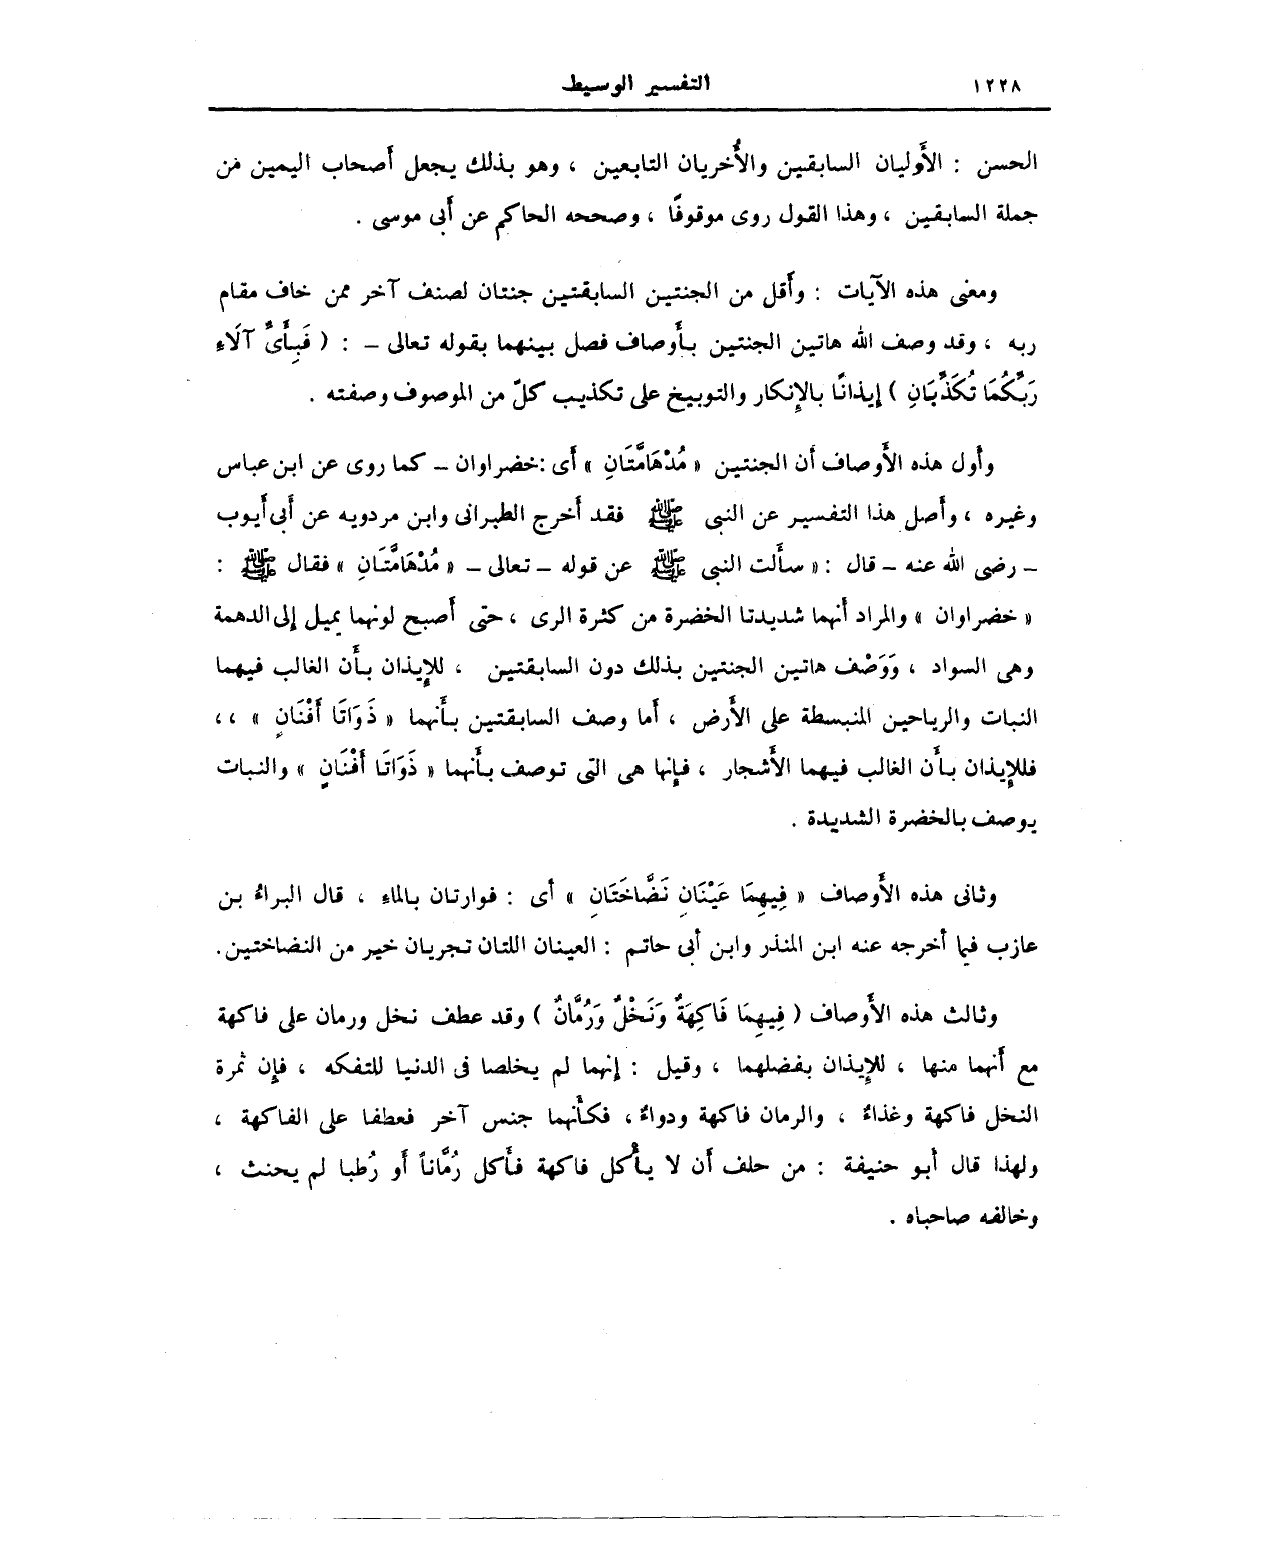 ١٢٢٨ التفسير الوسيط
الحسن : الأَوليان السابقين والأُخريان التابعين ، وهو بذلك يجعل أَصحاب اليمين من
جملة السابقين ، وهذا القول روى موقوفًا ، وصححه الحاكم عن أَبى موسى .
ومعنى هذه الآيات : وأَقل من الجنتين السابقتين جنتان لصنف آخر ممن خاف مقام
ربه ، وقد وصف الله هاتين الجنتين بأَوصاف فصل بينهما بقوله تعالى – : ( فَبِأَىِّ آلَاءِ
رَبِّكُمَا تُكَذِّبَانِ ) إِيذانًا بالإِنكار والتوبيخ على تكذيب كلّ من الموصوف وصفته .
وأَول هذه الأَوصاف أَن الجنتين « مُدْهَامَّتَانِ » أَى : خضراوان – كما روى عن ابن عباس
وغيره ، وأَصل هذا التفسير عن النبى ﷺ فقد أَخرج الطبرانى وابن مردويه عن أَبى أَيوب
– رضى الله عنه – قال : « سأَلت النبى ﷺ عن قوله – تعالى – « مُدْهَامَّتَانِ » فقال ﷺ :
« خضراوان » والمراد أَنهما شديدتا الخضرة من كثرة الرى ، حتى أَصبح لونهما يميل إِلى الدهمة
وهى السواد ، وَوَصْف هاتين الجنتين بذلك دون السابقتين ، للإِيذان بأَن الغالب فيهما
النبات والرياحين المنبسطة على الأَرض ، أَما وصف السابقتين بأَنهما « ذَوَاتَا أَفْنَانٍ » ، ،
فللإِيذان بأَن الغالب فيهما الأَشجار ، فإِنها هى التى توصف بأَنهما « ذَوَاتَا أَفْنَانٍ » والنبات
يوصف بالخضرة الشديدة .
وثانى هذه الأَوصاف « فِيهِمَا عَيْنَانِ نَضَّاخَتَانِ » أَى : فوارتان بالماءِ ، قال البراءُ بن
عازب فيما أَخرجه عنه ابن المنذر وابن أَبى حاتم : العينان اللتان تجريان خير من النضاختين .
وثالث هذه الأَوصاف ( فِيهِمَا فَاكِهَةٌ وَنَخْلٌ وَرُمَّانٌ ) وقد عطف نخل ورمان على فاكهة
مع أَنهما منها ، للإِيذان بفضلهما ، وقيل : إِنهما لم يخلصا فى الدنيا للتفكه ، فإِن ثمرة
النخل فاكهة وغذاءٌ ، والرمان فاكهة ودواءٌ ، فكأَنهما جنس آخر فعطفا على الفاكهة ،
ولهذا قال أَبو حنيفة : من حلف أَن لا يأْكل فاكهة فأَكل رُمَّاناً أَو رُطبا لم يحنث ،
وخالفه صاحباه .